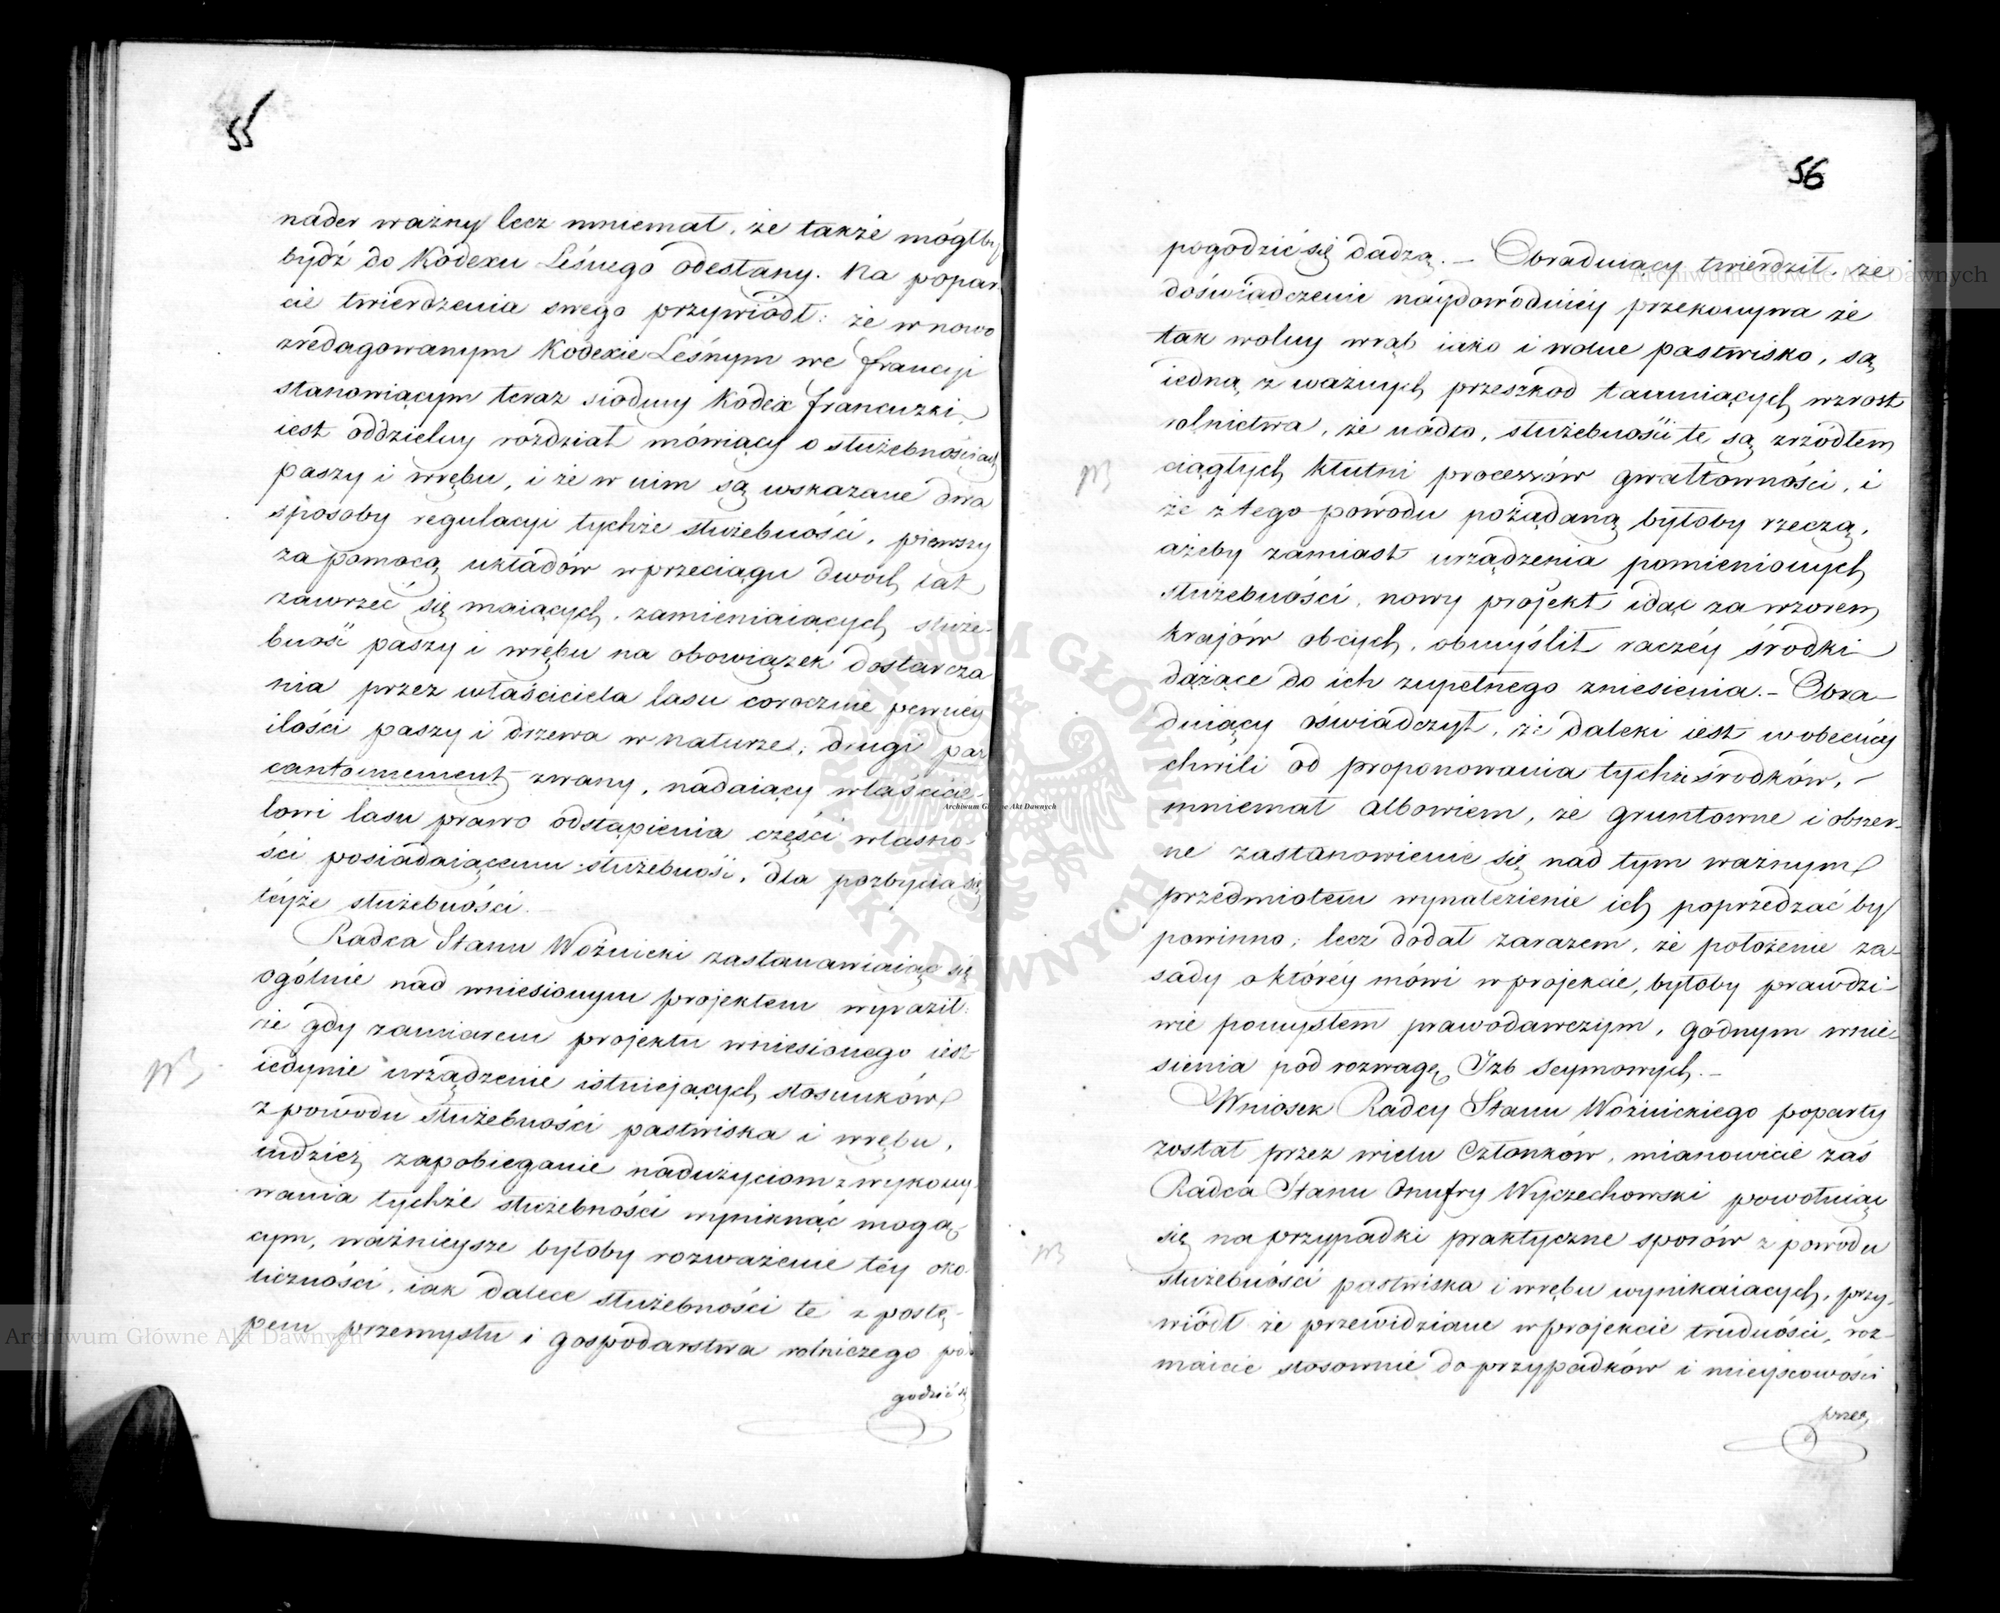 55
nader ważny lecz mniemał, że także mógłby
bydź do Kodexu Leśnego odesłany. Na popar-
cie twierdzenia swego przywiódł: że w nowo
zredagowanym Kodexie Leśnym we francyi
stanowiącym teraz siódmy Kodex francuzki
iest oddzielny rozdział mówiący o służebnościach
paszy i wrębu, i że w nim są wskazane dwa
sposoby regulacyi tychże służebności, pierwszy
za pomocą układów w przeciągu dwóch lat
zawrzeć się maiących, zamieniaiących służe-
bność paszy i wrębu na obowiązek dostarcza
nia przez właściciela lasu corocznie pewney
ilości paszy i drzewa w naturze; drugi par
cantonnement zwany, nadaiący właścicie-
lowi lasu prawo odstąpienia części własno-
ści posiadaiącemu służebność, dla pozbycia się
téyże służebności.
Radca Stanu Woźnicki zastanawiaiąc się
ogólnie nad wniesionym projektem wyraził:
że gdy zamiarem projektu wniesionego iest
iedynie urządzenie istniejących stosunków
z powodu służebności pastwiska i wrębu,
tudzież zapobieganie nadużyciom z wykony
wania tychże służebności wyniknąć mogą-
cym, ważnieysze byłoby rozważenie téy oko-
liczności, iak dalece służebności te z postę-
pem przemysłu i gospodarstwa rolniczego po
godzić się
56
pogodzić się dadzą. – Obraduiący twierdził, że
doświadczenie naydowodniéy przekonywa że
tak wolny wrąb iako i wolne pastwisko, są
iedną z ważnych przeszkod tamuiących wzrost
rolnictwa, że nadto, służebności te są zrzódłem
ciągłych kłutni processów gwałtowności, i
że z tego powodu pożądaną byłoby rzeczą,
ażeby zamiast urządzenia pomienionych
służebności, nowy projekt idąc za wzorem
krajów obcych, obmyślił raczéy środki
dążące do ich zupełnego zniesienia. – Obra-
duiący oświadczył, że daleki iest w obecnéy
chwili od proponowania tychże środków, –
mniemał albowiem, że gruntowne i obszer-
ne zastanowienie się nad tym ważnym
przedmiotem wynalezienie ich poprzedzać by
powinno; lecz dodał zarazem, że położenie za-
sady o któréy mówi w projekcie, byłoby prawdzi-
wie pomysłem prawodawczym, godnym wnie-
sienia pod rozwagę Izb Seymowych. –
Wniosek Radcy Stanu Woźnickiego poparty
został przez wielu Członków, mianowicie zaś
Radca Stanu Onufry Wyczechowski powołuiąc
się na przypadki praktyczne sporów z powodu
służebności pastwiska i wrębu wynikaiących, przy-
wiódł że przewidziane w projekcie trudności, roz-
maicie stosownie do przypadków i mieyscowości
przez
Archiwum Główne Akt Dawnych
Archiwum Główne Akt Dawnych
Archiwum Główne Akt Dawnych
ARCHIWUM GŁÓWNE AKT DAWNYCH